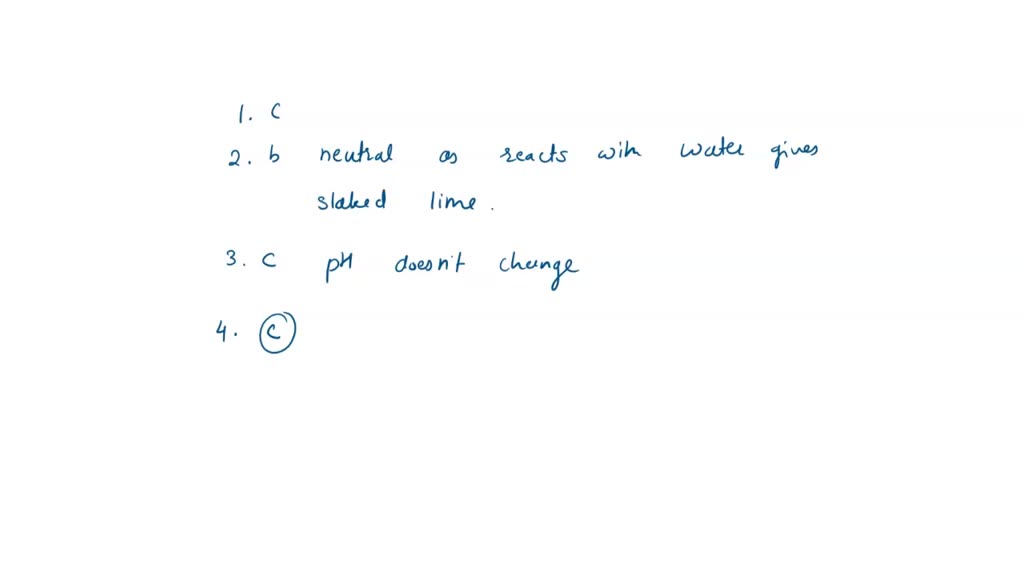 1. c
2. b neutral as reacts with water gives
slaked lime.
3. c pH doesn't change
4. c